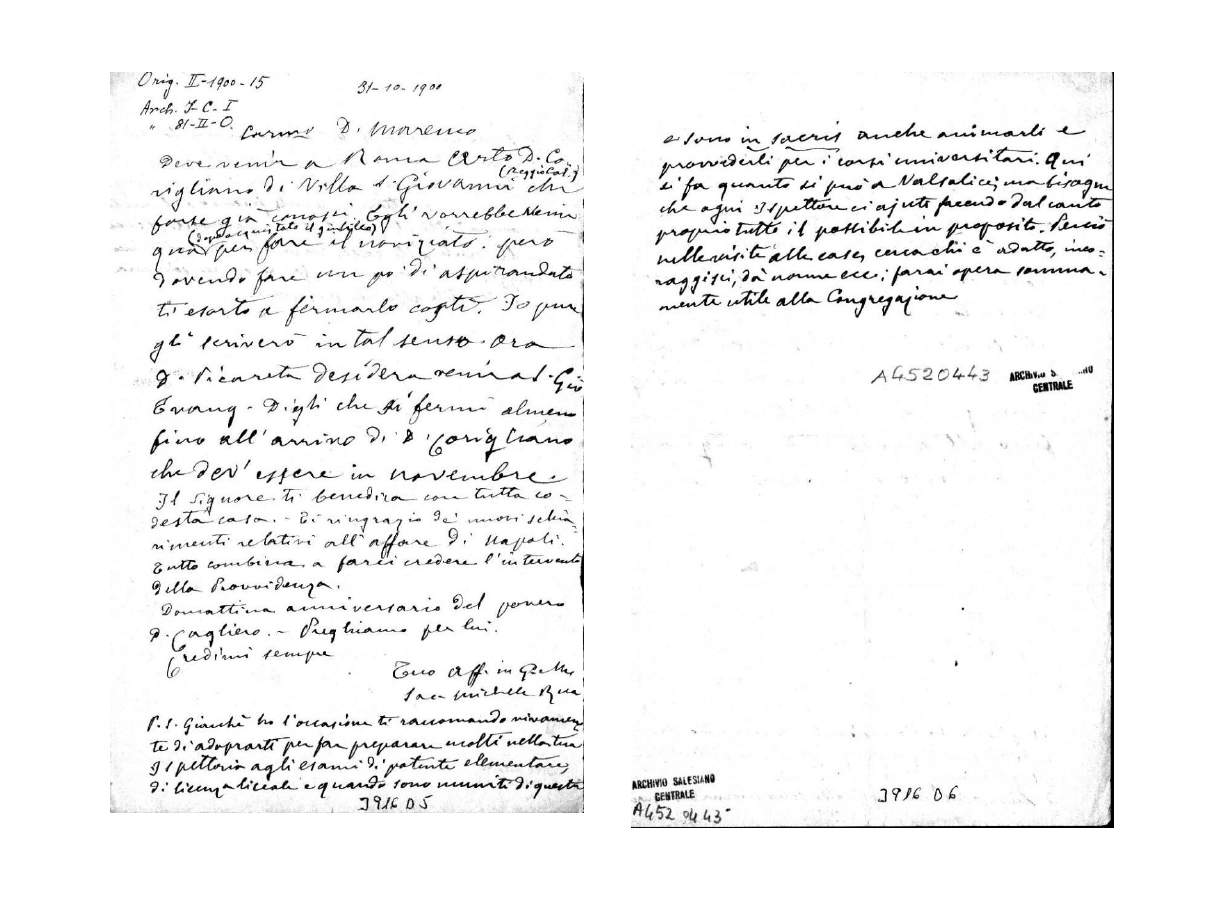 Orig. II-1900-15
31-10-1900
Arch. J-C-I
" 81-II-O.
Carmo D. Marenco
Deve venir a Roma certo D. Co-
(Reggio Cal.)
rigliano di Villa S. Giovanni che
forse già conosci. Egli vorrebbe venir
(dopo acquistato il giubileo)
qua per fare il noviziato: però
dovendo fare un po' di aspirandato
ti esorto a fermarlo costì. Io pure
gli scriverò in tal senso. Ora
D. Picareta desidera venir a S. Gio
Evang. Digli che si fermi almeno
fino all'arrivo di D. Corigliano
che dev'essere in novembre.
Il Signore ti benedica con tutta co-
desta casa. - Ti ringrazio de' nuovi schia-
rimenti relativi all'affare di Napoli.
Tutto combina a farci credere l'intervento
della Provvidenza.
Domattina anniversario del povero
D. Cagliero. - Preghiamo per lui.
Credimi sempre
Tuo aff. in G. e M.
Sac. Michele Rua
P.S. Giacchè ho l'occasione ti raccomando vivamen
te di adoprarti per far preparare molti nella tua
Ispettoria agli esami di patente elementare,
di licenza liceale e quando sono muniti di questa
J916 D5
e sono in sacris anche animarli e
provvederli per i corsi universitari. Qui
si fa quanto si può a Valsalice; ma bisogna
che ogni Ispettore ci ajuti facendo dal canto
proprio tutto il possibile in proposito. Perciò
nelle visite alle case, cerca chi è adatto, inco-
raggisci, dà norme ecc; farai opera somma-
mente utile alla Congregazione
A4520443
ARCHIVIO S
CENTRALE
ARCHIVIO SALESIANO
CENTRALE
A452 04 43
J916 D6